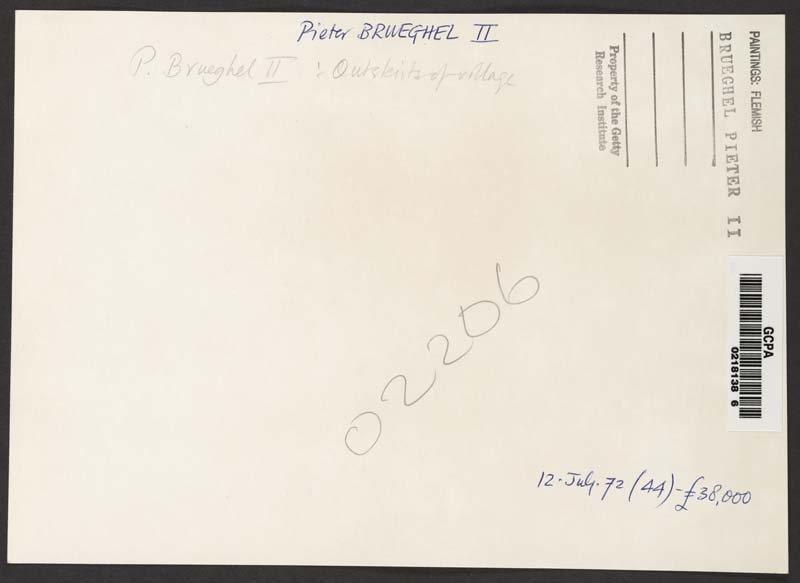 Pieter BRUEGHEL II
P. Brueghel II : Outskirts of village
PAINTINGS: FLEMISH
BRUEGHEL PIETER II
Property of the Getty
Research Institute
GCPA
0218138 6
02206
12. July. 72 (44) - £38,000